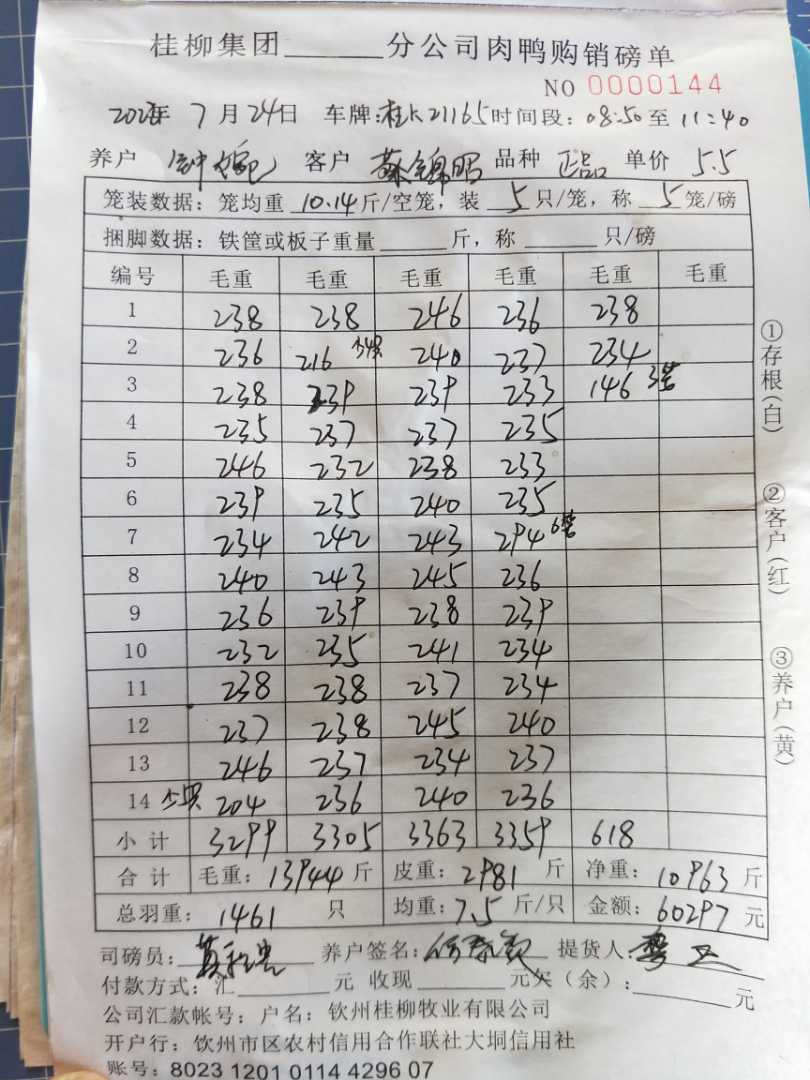 桂柳集团______分公司肉鸭购销磅单
NO 0000144
年 7月24日 车牌:桂K21165 时间段:08:50至11:40
养户 钟 客户 蔡锦昭 品种 正品 单价 5.5
笼装数据:笼均重 10.14 斤/空笼,装 5 只/笼,称 5 笼/磅
捆脚数据:铁筐或板子重量______斤,称______只/磅
编号 毛重 毛重 毛重 毛重 毛重 毛重
1 238 238 246 236 238
2 236 216 少4只 240 237 234
3 238 239 239 233 146 3笼
4 235 237 237 235
5 246 232 238 233
6 239 235 240 235
7 234 242 243 294 6笼
8 240 243 245 236
9 236 239 238 239
10 232 235 241 234
11 238 238 237 234
12 237 238 245 240
13 246 237 234 237
14 204 236 240 236
小计 3299 3305 3363 3359 618
合计 毛重:13944斤 皮重:2981斤 净重:10963斤
总羽重:1461只 均重:7.5斤/只 金额:60297元
司磅员: 养户签名: 提货人:
付款方式:汇______元 收现______元欠(余):______元
公司汇款帐号:户名:钦州桂柳牧业有限公司
开户行:钦州市区农村信用合作联社大垌信用社
账号:8023 1201 0114 4296 07
①存根(白)
②客户(红)
③养户(黄)